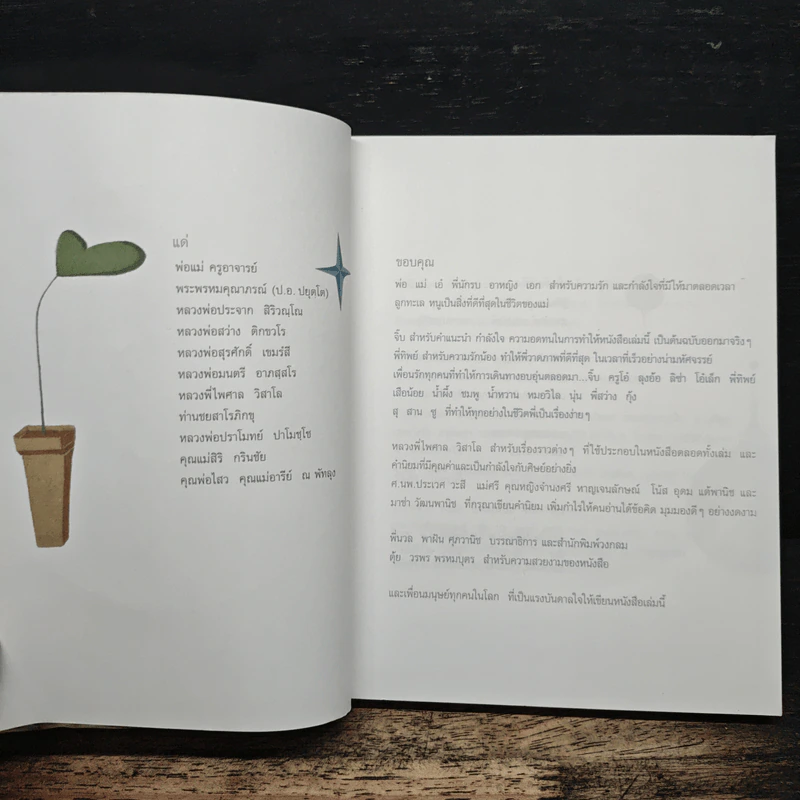 แด่
พ่อแม่ ครูอาจารย์
พระพรหมคุณาภรณ์ (ป.อ. ปยุตฺโต)
หลวงพ่อประจาก สิริวณฺโณ
หลวงพ่อสว่าง ติกขวโร
หลวงพ่อสุรศักดิ์ เขมรํสี
หลวงพ่อมนตรี อาภสฺสโร
หลวงพี่ไพศาล วิสาโล
ท่านชยสาโรภิกขุ
หลวงพ่อปราโมทย์ ปาโมชฺโช
คุณแม่สิริ กรินชัย
คุณพ่อไสว คุณแม่อารีย์ ณ พัทลุง
ขอบคุณ
พ่อ แม่ เอ๋ พี่นักรบ อาหญิง เอก สำหรับความรัก และกำลังใจที่มีให้มาตลอดเวลา
ลูกทะเล หนูเป็นสิ่งที่ดีที่สุดในชีวิตของแม่
จิ๊บ สำหรับคำแนะนำ กำลังใจ ความอดทนในการทำให้หนังสือเล่มนี้ เป็นต้นฉบับออกมาจริงๆ
พี่ทิพย์ สำหรับความรักน้อง ทำให้พี่วาดภาพที่ดีที่สุด ในเวลาที่เร็วอย่างน่ามหัศจรรย์
เพื่อนรักทุกคนที่ทำให้การเดินทางอบอุ่นตลอดมา...จิ๊บ ครูโอ๋ ลุงอ้อ ลิซ่า โอ๋เล็ก พี่ทิพย์
เสือน้อย น้ำผึ้ง ชมพู น้ำหวาน หมอวิไล นุ่น พี่สว่าง กุ้ง
สุ สาน ชู ที่ทำให้ทุกอย่างในชีวิตพี่เป็นเรื่องง่ายๆ
หลวงพี่ไพศาล วิสาโล สำหรับเรื่องราวต่างๆ ที่ใช้ประกอบในหนังสือตลอดทั้งเล่ม และ
คำนิยมที่มีคุณค่าและเป็นกำลังใจกับศิษย์อย่างยิ่ง
ศ.นพ.ประเวศ วะสี แม่ศรี คุณหญิงจำนงศรี หาญเจนลักษณ์ โน้ส อุดม แต้พานิช และ
มาช่า วัฒนพานิช ที่กรุณาเขียนคำนิยม เพิ่มกำไรให้คนอ่านได้ข้อคิด มุมมองดีๆ อย่างงดงาม
พี่นวล พาฝัน ศุภวานิช บรรณาธิการ และสำนักพิมพ์วงกลม
ตุ้ย วรพร พรหมบุตร สำหรับความสวยงามของหนังสือ
และเพื่อนมนุษย์ทุกคนในโลก ที่เป็นแรงบันดาลใจให้เขียนหนังสือเล่มนี้